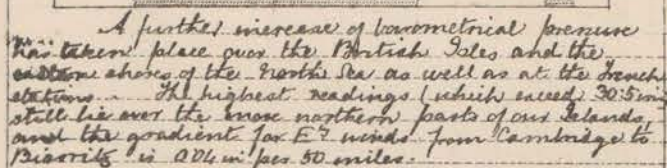 A further increase of barometrical pressure
has taken place over the British Isles and the
eastern shores of the North Sea as well as at the French
stations. The highest readings (which exceed 30.5 in)
still lie over the more northern parts of our Islands,
and the gradient for Ely winds from Cambridge to
Biarritz is 0.04 in per 50 miles.